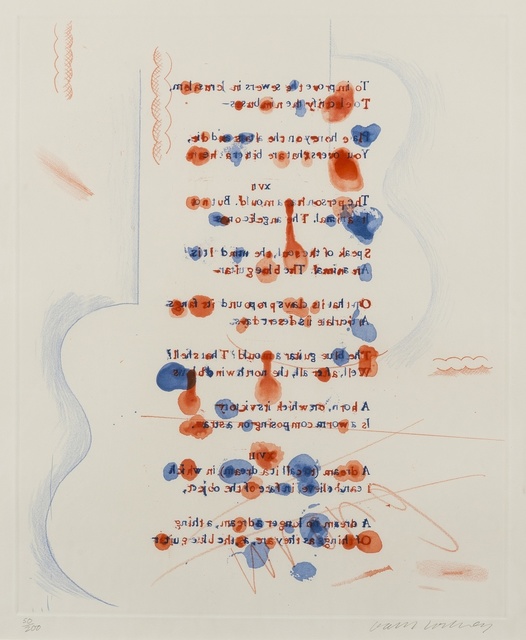 To improve the sewers in Jerusalem,
To electrify the nimbuses—
Place honey on the altars and die,
You lovers that are bitter at heart.
XVII
The person has a mould. But not
Its animal. The angelic ones
Speak of the soul, the mind. It is
An animal. The blue guitar—
On that its claws propound, its fangs
Articulate its desert days.
The blue guitar a mould? That shell?
Well, after all, the north wind blows
A horn, on which its victory
Is a worm composing on a straw.
XVIII
A dream (to call it a dream) in which
I can believe, in face of the object,
A dream no longer a dream, a thing,
Of things as they are, as the blue guitar
/200